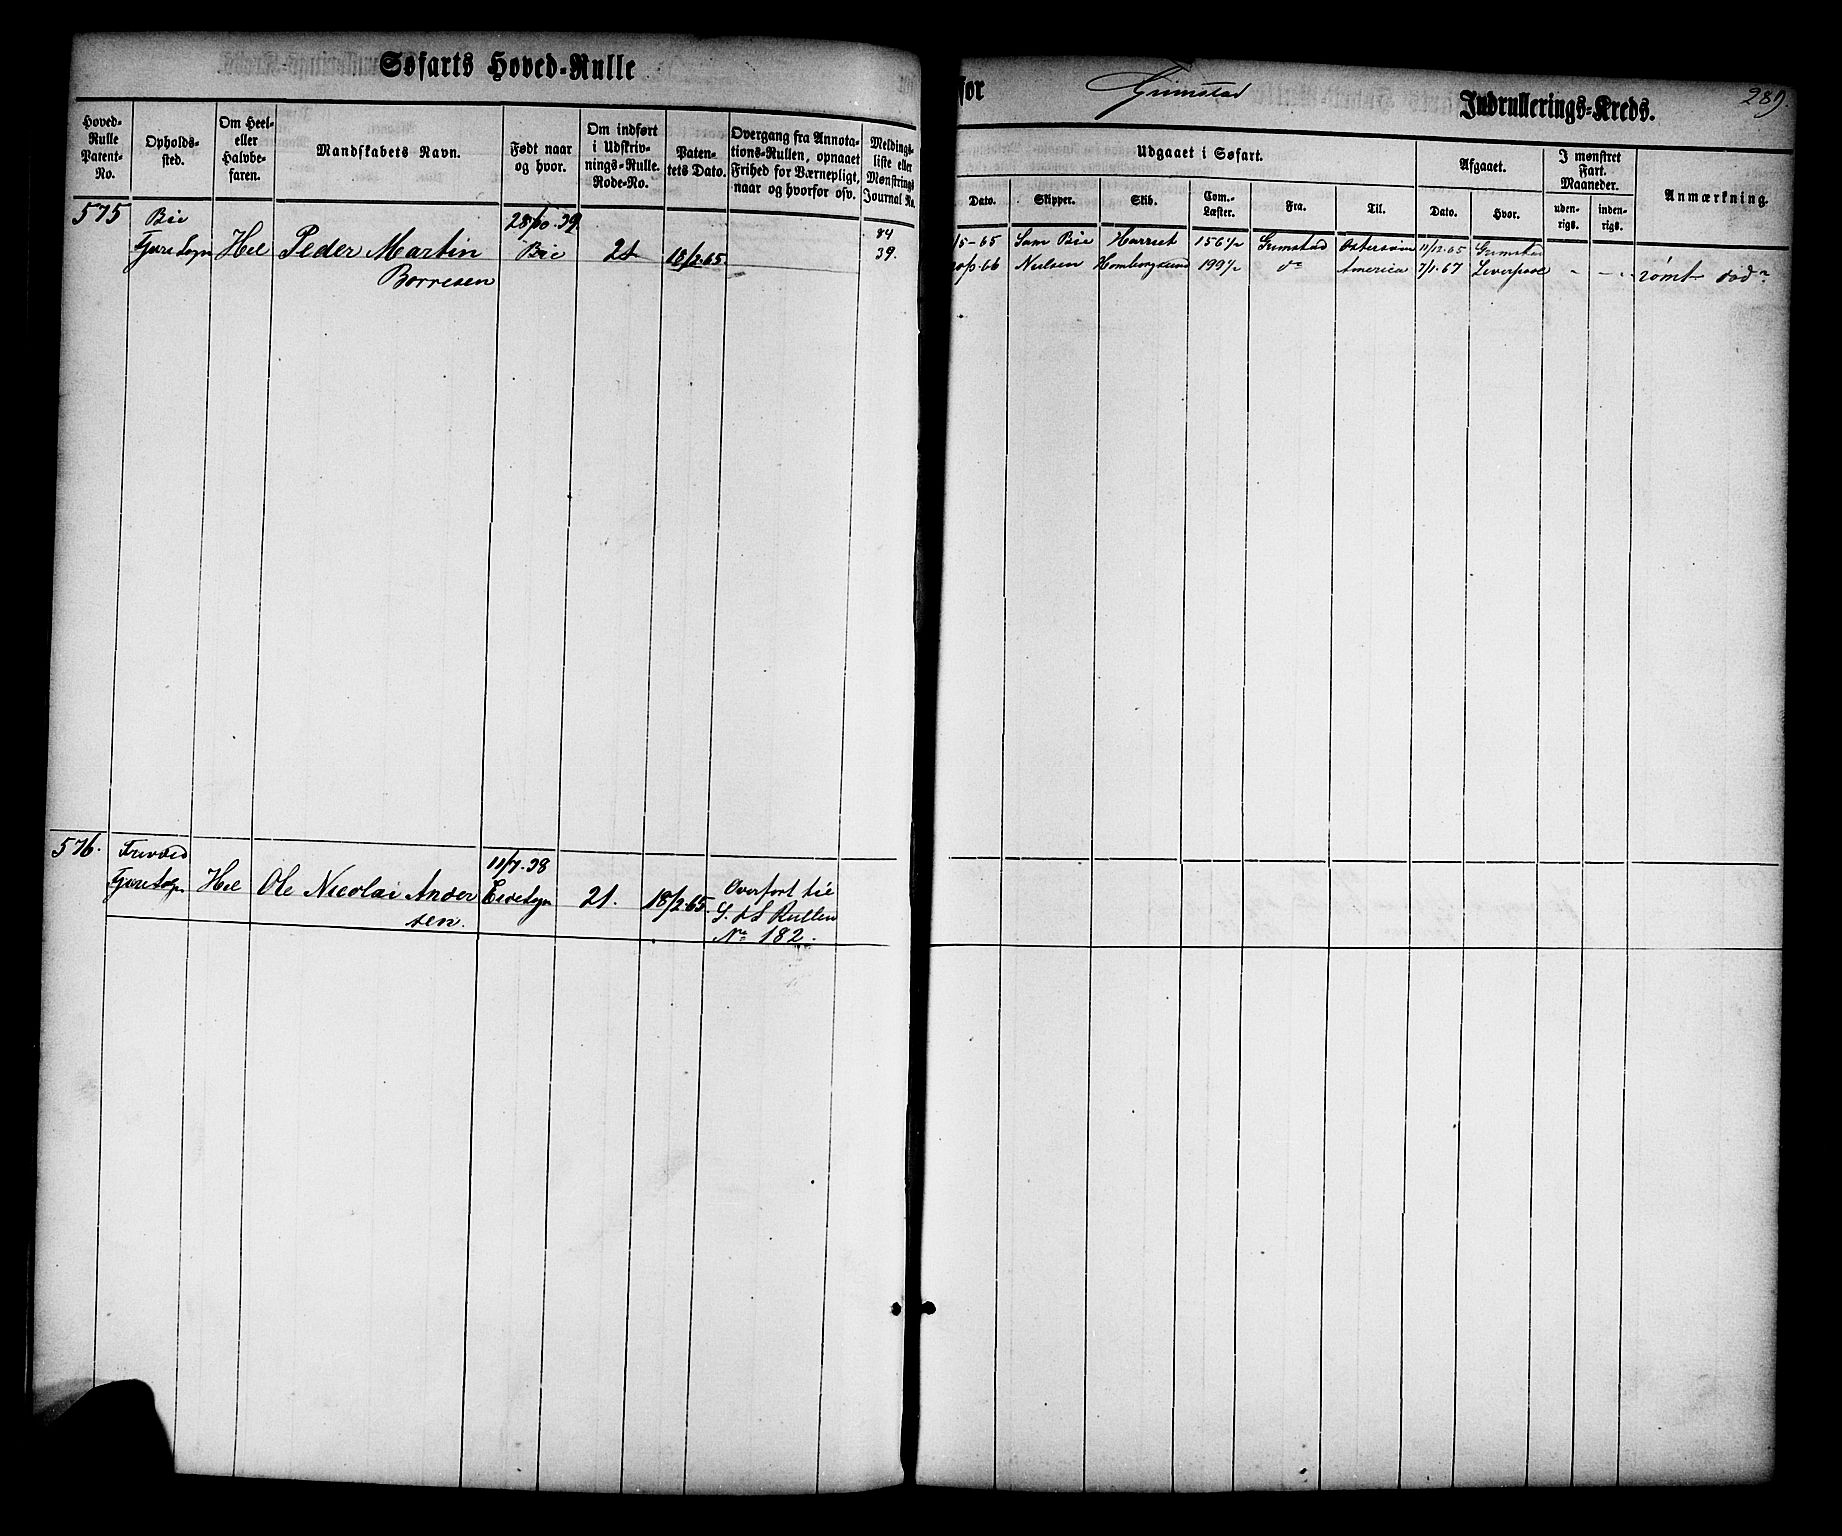 Søfarts Hoved-Rulle
for Grimstad Indrullerings-Kreds.
289.
Hoved-Rulle Patent-No.
Opholds-sted.
Om Heel- eller Halvbe-faren.
Mandskabets Navn.
Født naar og hvor.
Om indført i Udskriv-nings-Rulle. Rode-No.
Paten-tets Dato.
Overgang fra Annota-tions-Rullen, opnaaet Frihed for Værnepligt, naar og hvorfor osv.
Meldings-liste eller Mønstrings Journal No.
Udgaaet i Søfart.
Afgaaet.
I mønstret Fart. Maaneder.
Anmærkning.
Dato.
Skipper.
Skib.
Com.-Læster.
Fra.
Til.
Dato.
Hvor.
uden-rigs.
inden-rigs.
575 Bie 28/10.39. 84
Fjære Sogn Hel Peder Martin Bie 21 18/2.65. 39.
Borresen
5-65 Sam Bie Harriet 156½ Grimstad Østersøen 11/12.65 Grimstad
66 Nielsen Homborgsund 199½ do America 7/1.67 Liverpool - - rømt
576. 11/7.38
Fjære Sogn Hel Ole Nicolai Ander Eide Sogn 21. 18/2.65. Overført til
sen. S. & S Rullen
No 182.